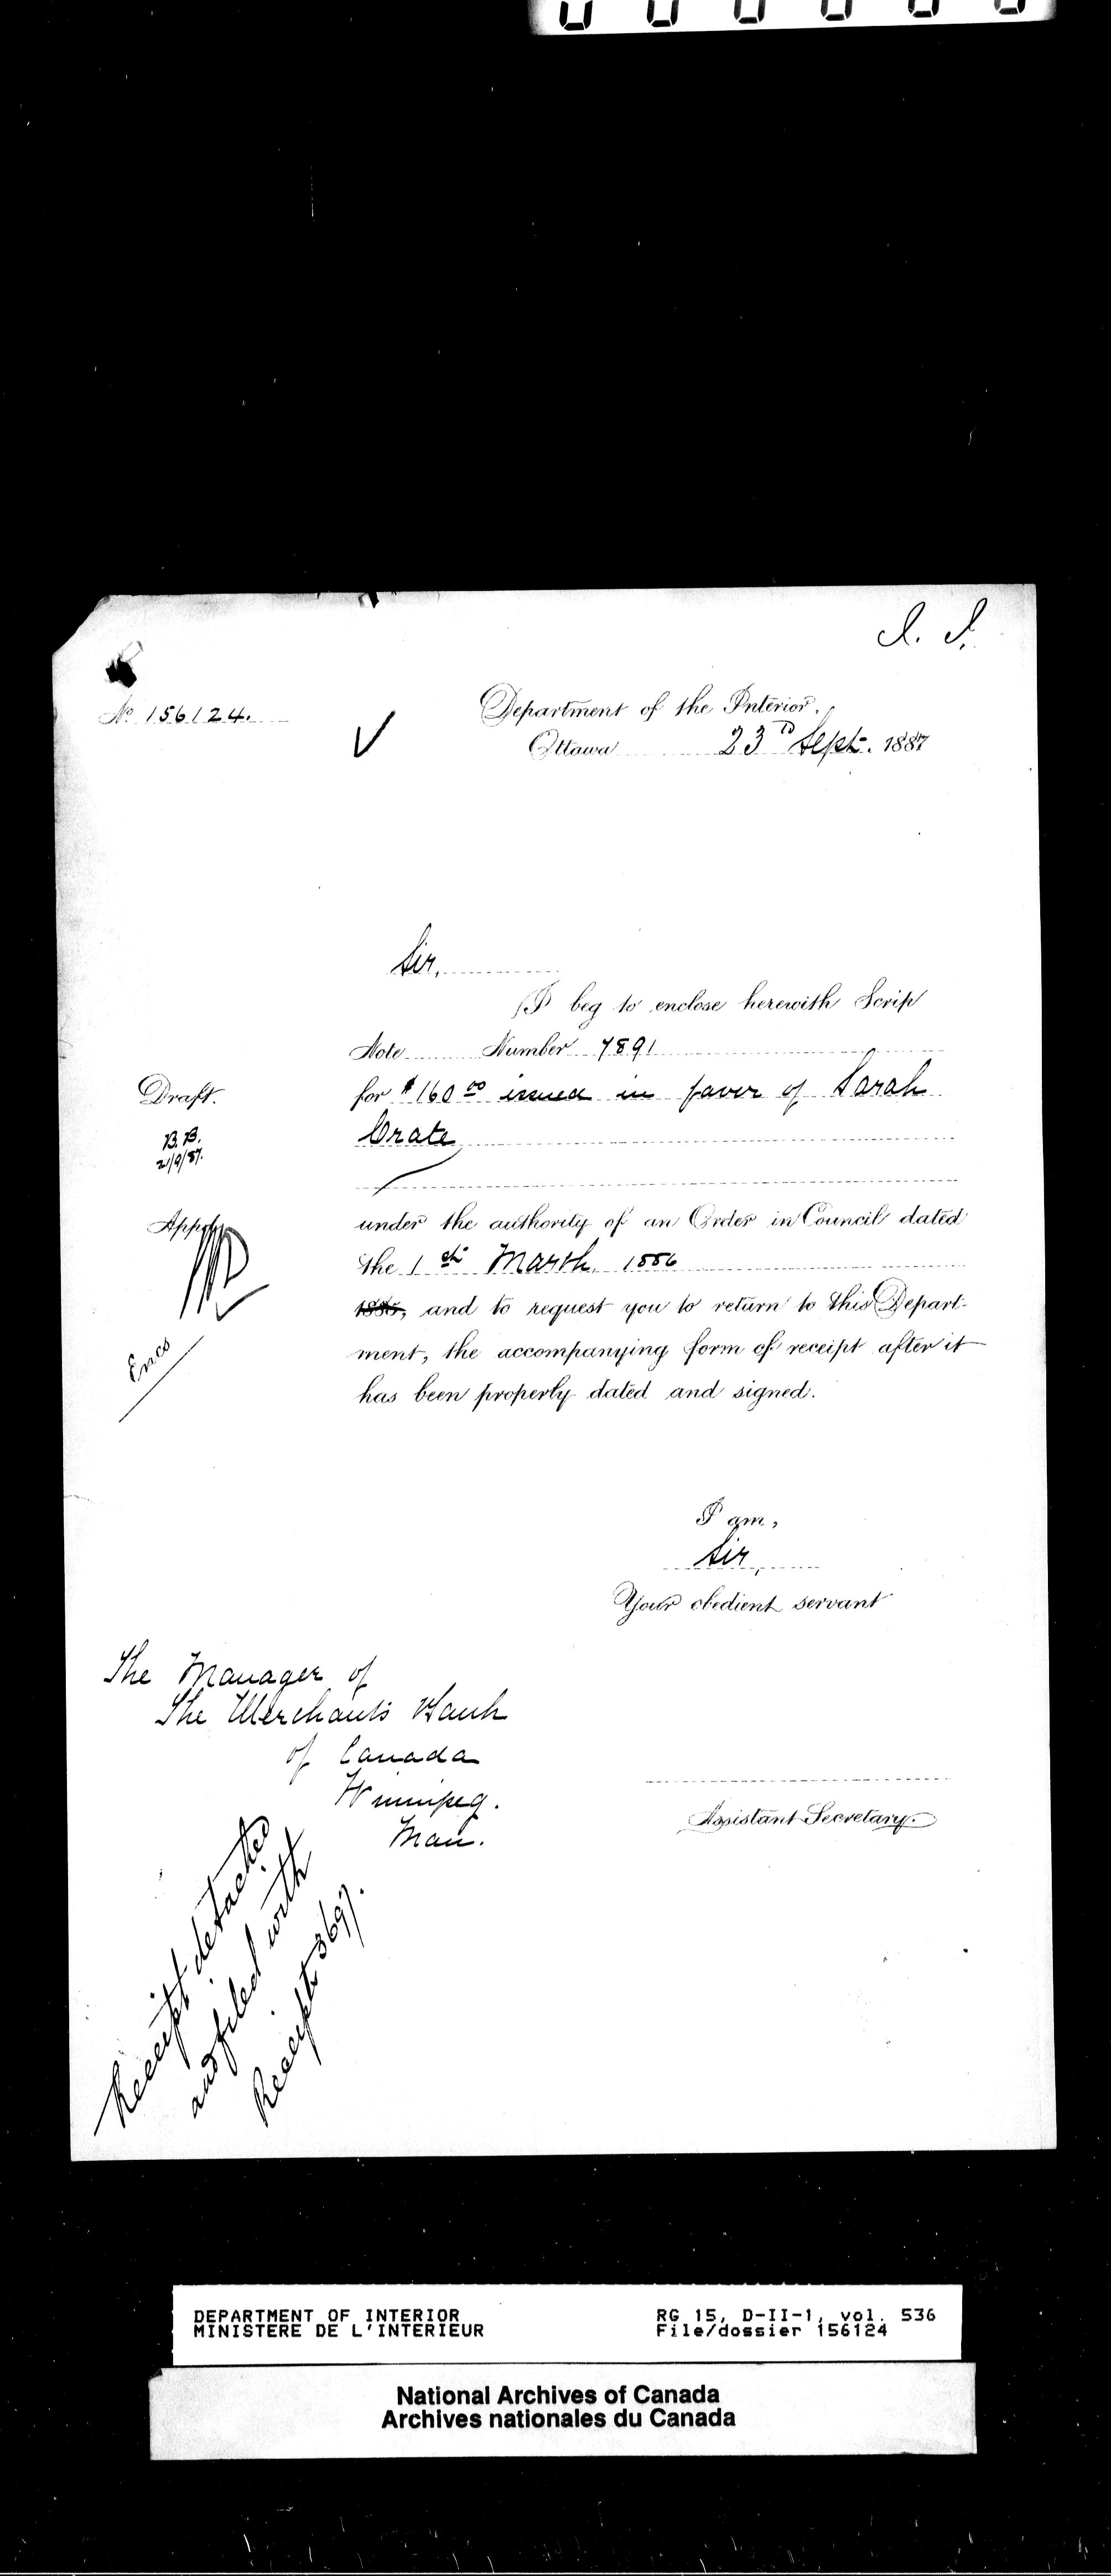 No 156124.
Department of the Interior,
Ottawa 23rd Sept. 1887
Sir,
I beg to enclose herewith Scrip
Note Number 7891
for $160 00 issued in favor of Sarah
Crate
Draft.
B.B.
21/9/87.
under the authority of an Order in Council dated
Appd
the 1st March, 1886
1885, and to request you to return to this Depart-
ment, the accompanying form of receipt after it
has been properly dated and signed.
Encs
I am,
Sir,
Your obedient servant
The Manager of
The Merchants Bank
of Canada
Winnipeg.
Man.
Assistant Secretary.
Receipt detached
and filed with
Receipt 3697.
DEPARTMENT OF INTERIOR RG 15, D-II-1, vol. 536
MINISTERE DE L'INTERIEUR File/dossier 156124
National Archives of Canada
Archives nationales du Canada